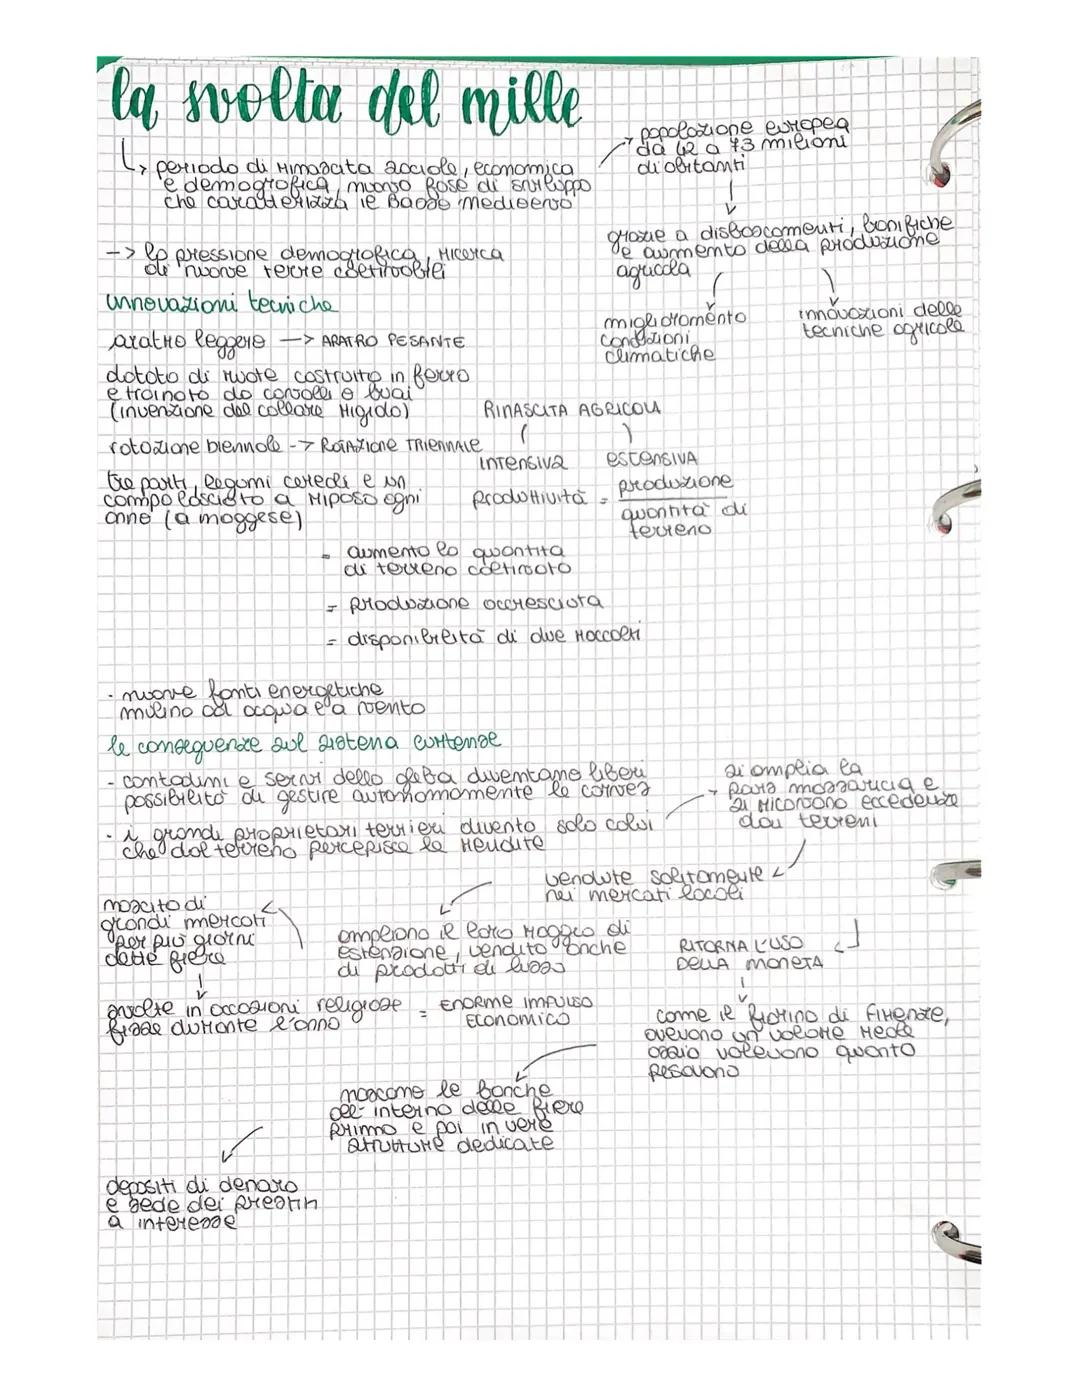 la svolta del mille
↳ periodo di rinascita sociale, economica
e demografica, nuova fase di sviluppo
che caratterizza il Basso Medioevo
→ popolazione europea
da 42 a 73 milioni
di abitanti
↓
grazie a disboscamenti, bonifiche
e aumento della produzione
agricola
-> la pressione demografica, ricerca
di nuove terre coltivabili
miglioramento
condizioni
climatiche
innovazioni delle
tecniche agricole
innovazioni tecniche
aratro leggero -> ARATRO PESANTE
dotato di ruote costruito in ferro
e trainato da cavalli o buoi
(invenzione del collare rigido)
rotazione biennale -> ROTAZIONE TRIENNALE
tre parti, legumi cereali e un
campo lasciato a riposo ogni
anno (a maggese)
RINASCITA AGRICOLA
intensiva
estensiva
produttività = produzione
quantità di
terreno
= aumento la quantità
di terreno coltivato
= produzione accresciuta
= disponibilità di due raccolti
· nuove fonti energetiche
mulino ad acqua e a vento
le conseguenze sul sistema curtense
- contadini e servi della gleba diventano liberi
possibilità di gestire autonomamente le corvez
· i grandi proprietari terrieri diventa solo colui
che dal terreno percepisce le rendite
→ si amplia la
pars massaricia e
si ricavano eccedenze
dai terreni
vendute solitamente
nei mercati locali
nascita di
grandi mercati
per più giorni
dette fiere
ampliano il loro raggio di
estensione, vendita anche
di prodotti di lusso
RITORNA L'USO
DELLA MONETA
svolte in occasioni religiose
fisse durante l'anno
= ENORME IMPULSO
ECONOMICO
come il fiorino di Firenze,
avevano un valore reale
ossia valevano quanto
pesavano
nascono le banche
all'interno delle fiere
prima e poi in vere
strutture dedicate
depositi di denaro
e sede dei prestiti
a interesse